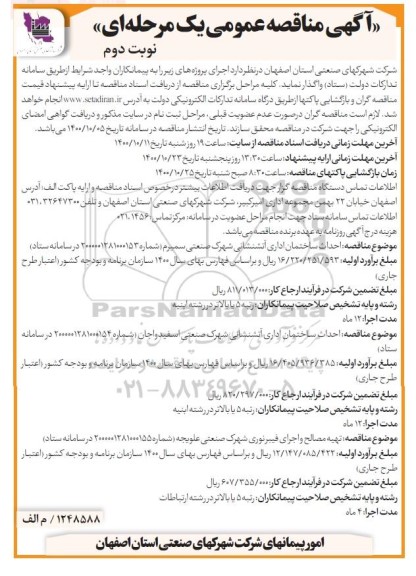 «آگهی مناقصه عمومی یک مرحله‌ای»
نوبت دوم
شرکت شهرکهای صنعتی استان اصفهان در نظر دارد اجرای پروژه های زیر را به پیمانکاران واجد شرایط از طریق سامانه
تدارکات دولت (ستاد) واگذار نماید. کلیه مراحل برگزاری مناقصه از دریافت اسناد مناقصه تا ارایه پیشنهاد قیمت
مناقصه گران و بازگشایی پاکتها از طریق درگاه سامانه تدارکات الکترونیکی دولت به آدرس www.setadiran.ir انجام خواهد
شد. لازم است مناقصه گران در صورت عدم عضویت قبلی، مراحل ثبت نام در سایت مذکور و دریافت گواهی امضای
الکترونیکی را جهت شرکت در مناقصه محقق سازند. تاریخ انتشار مناقصه در سامانه تاریخ ۱۴۰۰/۱۰/۰۵ می باشد.
آخرین مهلت زمانی دریافت اسناد مناقصه از سایت: ساعت ۱۹ روز شنبه تاریخ ۱۴۰۰/۱۰/۱۱
آخرین مهلت زمانی ارایه پیشنهاد: ساعت ۱۳:۳۰ روز پنجشنبه تاریخ ۱۴۰۰/۱۰/۲۳
زمان بازگشایی پاکتهای مناقصه: ساعت ۸:۳۰ صبح شنبه تاریخ ۱۴۰۰/۱۰/۲۵
اطلاعات تماس دستگاه مناقصه گزار جهت دریافت اطلاعات بیشتر در خصوص اسناد مناقصه و ارایه پاکت الف: آدرس
اصفهان خیابان ۲۲ بهمن مجموعه اداری امیرکبیر، شرکت شهرکهای صنعتی استان اصفهان و تلفن ۰۳۱.۳۲۶۴۷۳۰۰
اطلاعات تماس سامانه ستاد جهت انجام مراحل عضویت در سامانه: مرکز تماس: ۰۲۱.۱۴۵۶
هزینه درج آگهی روزنامه به عهده برنده مناقصه می باشد.
موضوع مناقصه: احداث ساختمان اداری آتشنشانی شهرک صنعتی سمیرم (شماره ۲۰۰۰۰۰۱۲۸۱۰۰۰۱۵۳ در سامانه ستاد)
مبلغ برآورد اولیه: ۱۶/۲۲۰/۲۵۱/۵۹۳ ریال و بر اساس فهارس بهای سال ۱۴۰۰ سازمان برنامه و بودجه کشور (اعتبار طرح
جاری)
مبلغ تضمین شرکت در فرآیند ارجاع کار: ۸۱۷/۰۱۳/۰۰۰ ریال
رشته و پایه تشخیص صلاحیت پیمانکاران: رتبه ۵ یا بالاتر در رشته ابنیه
مدت اجرا: ۱۲ ماه
موضوع مناقصه: احداث ساختمان اداری آتشنشانی شهرک صنعتی اسفیدواجان (شماره ۲۰۰۰۰۰۱۲۸۱۰۰۰۱۵۴ در سامانه
ستاد)
مبلغ برآورد اولیه: ۱۶/۴۰۵/۹۳۶/۳۸۵ ریال و بر اساس فهارس بهای سال ۱۴۰۰ سازمان برنامه و بودجه کشور (اعتبار
طرح جاری)
مبلغ تضمین شرکت در فرآیند ارجاع کار: ۸۲۰/۲۹۷/۰۰۰ ریال
رشته و پایه تشخیص صلاحیت پیمانکاران: رتبه ۵ یا بالاتر در رشته ابنیه
مدت اجرا: ۱۲ ماه
موضوع مناقصه: تهیه مصالح و اجرای فیبر نوری شهرک صنعتی علویجه (شماره ۲۰۰۰۰۰۱۲۸۱۰۰۰۱۵۵ در سامانه ستاد)
مبلغ برآورد اولیه: ۱۲/۱۴۷/۰۸۵/۴۲۲ ریال و بر اساس فهارس بهای سال ۱۴۰۰ سازمان برنامه و بودجه کشور (اعتبار
طرح جاری)
مبلغ تضمین شرکت در فرآیند ارجاع کار: ۶۰۷/۳۵۵/۰۰۰ ریال
رشته و پایه تشخیص صلاحیت پیمانکاران: رتبه ۵ یا بالاتر در رشته ارتباطات
مدت اجرا: ۴ ماه
۱۲۴۸۵۸۸ / م الف
امور پیمانهای شرکت شهرکهای صنعتی استان اصفهان
ParsNamadData
۰۲۱-۸۸۳۴۹۶۷۰-۵